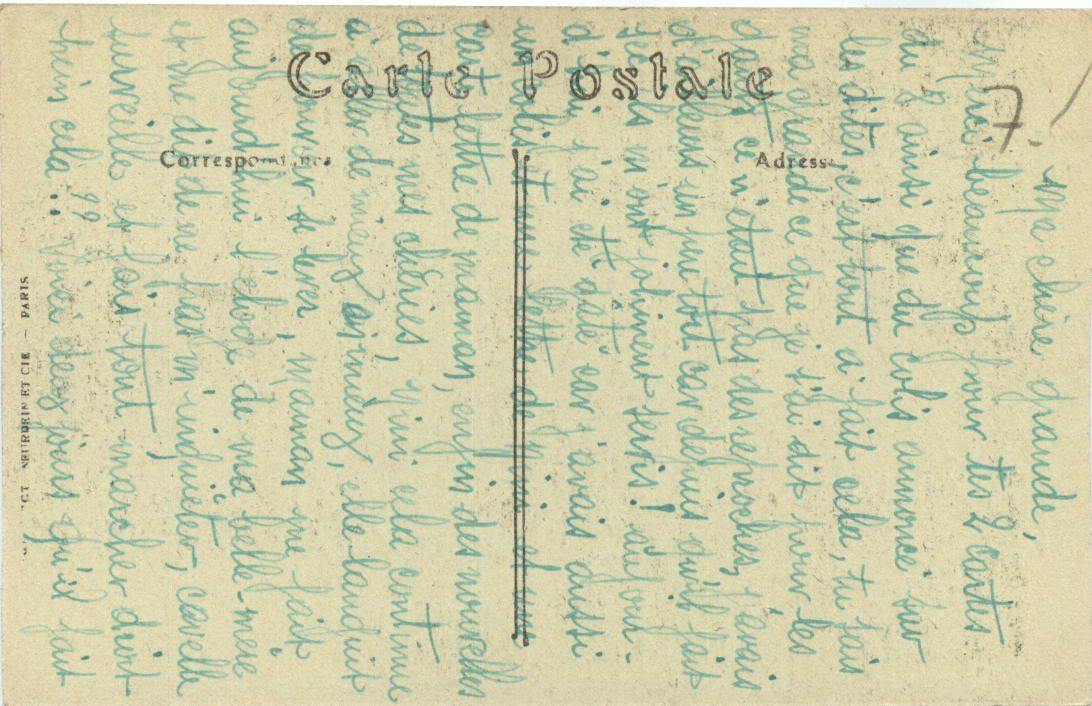 Carte Postale
Correspondance
Adresse
PARIS
7
Ma chère grande,
Merci beaucoup pour tes 2 cartes
du 2 ainsi que du colis annoncé sur
les dites, c'est tout à fait cela, tu sais
ma grande ce que je t'ai dit pour les
ce n'était pas des reproches, j'avais
d'ailleurs un peu tort car depuis qu'il fait
ils m'ont joliment servis! aujour-
d'hui j'ai été gâté car j'avais aussi
un colis et une lettre de
carte lettre de maman, enfin des nouvelles
de toutes mes chéries, Nini cela continue
à aller de mieux en mieux, elle languit
de pouvoir se lever, maman me fait
aujourd'hui l'éloge de ma belle-mère
et me dit de ne pas m'inquiéter, car elle
surveille et fais tout marcher droit
hein cela !! Voici deux jours qu'il fait